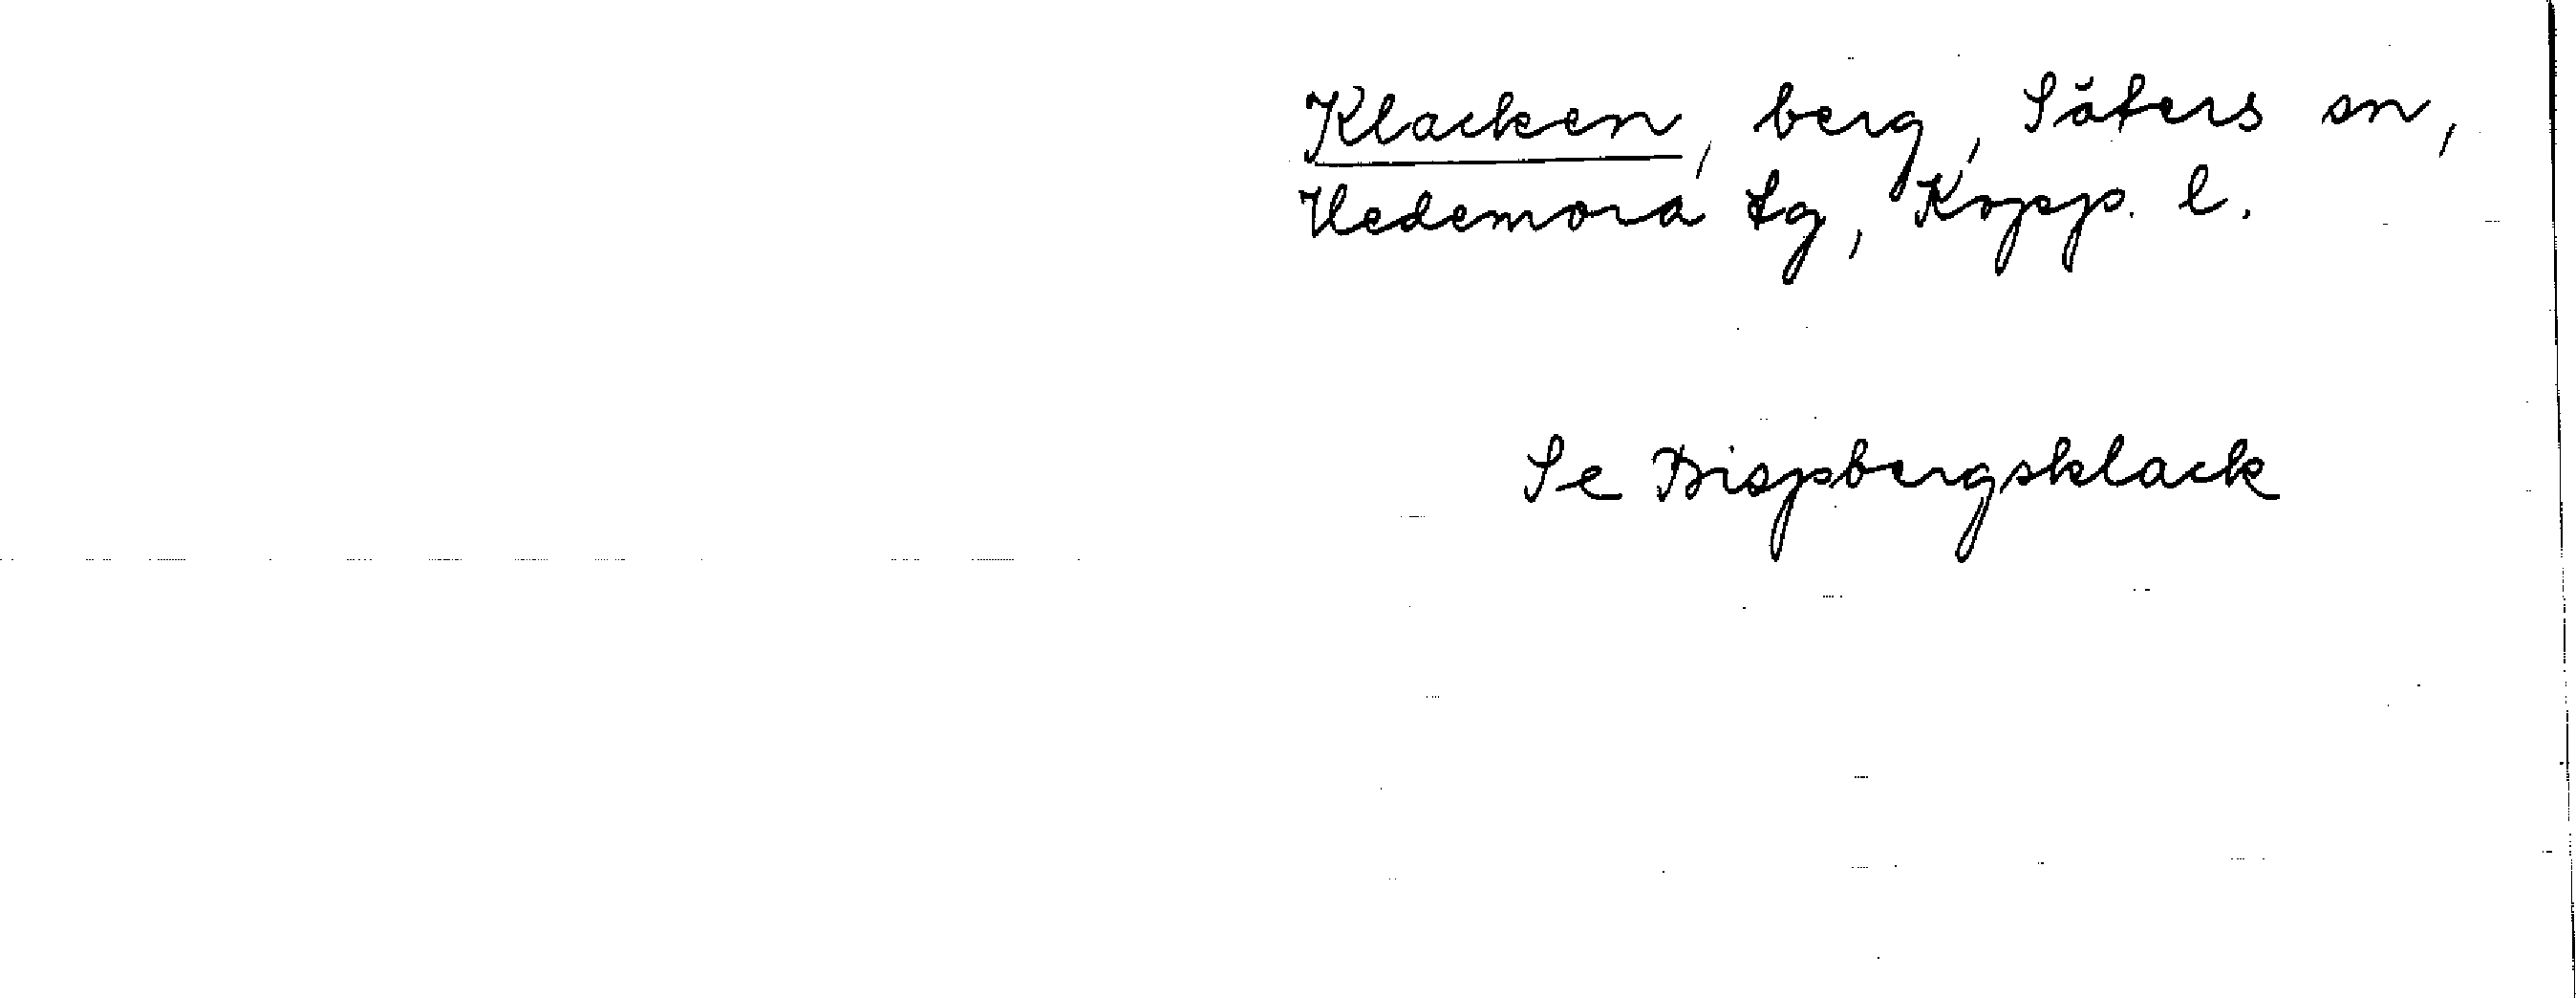 Klacken, berg, Säters sn,
Hedemora tg, Kopp. l.
Se Bispbergsklack